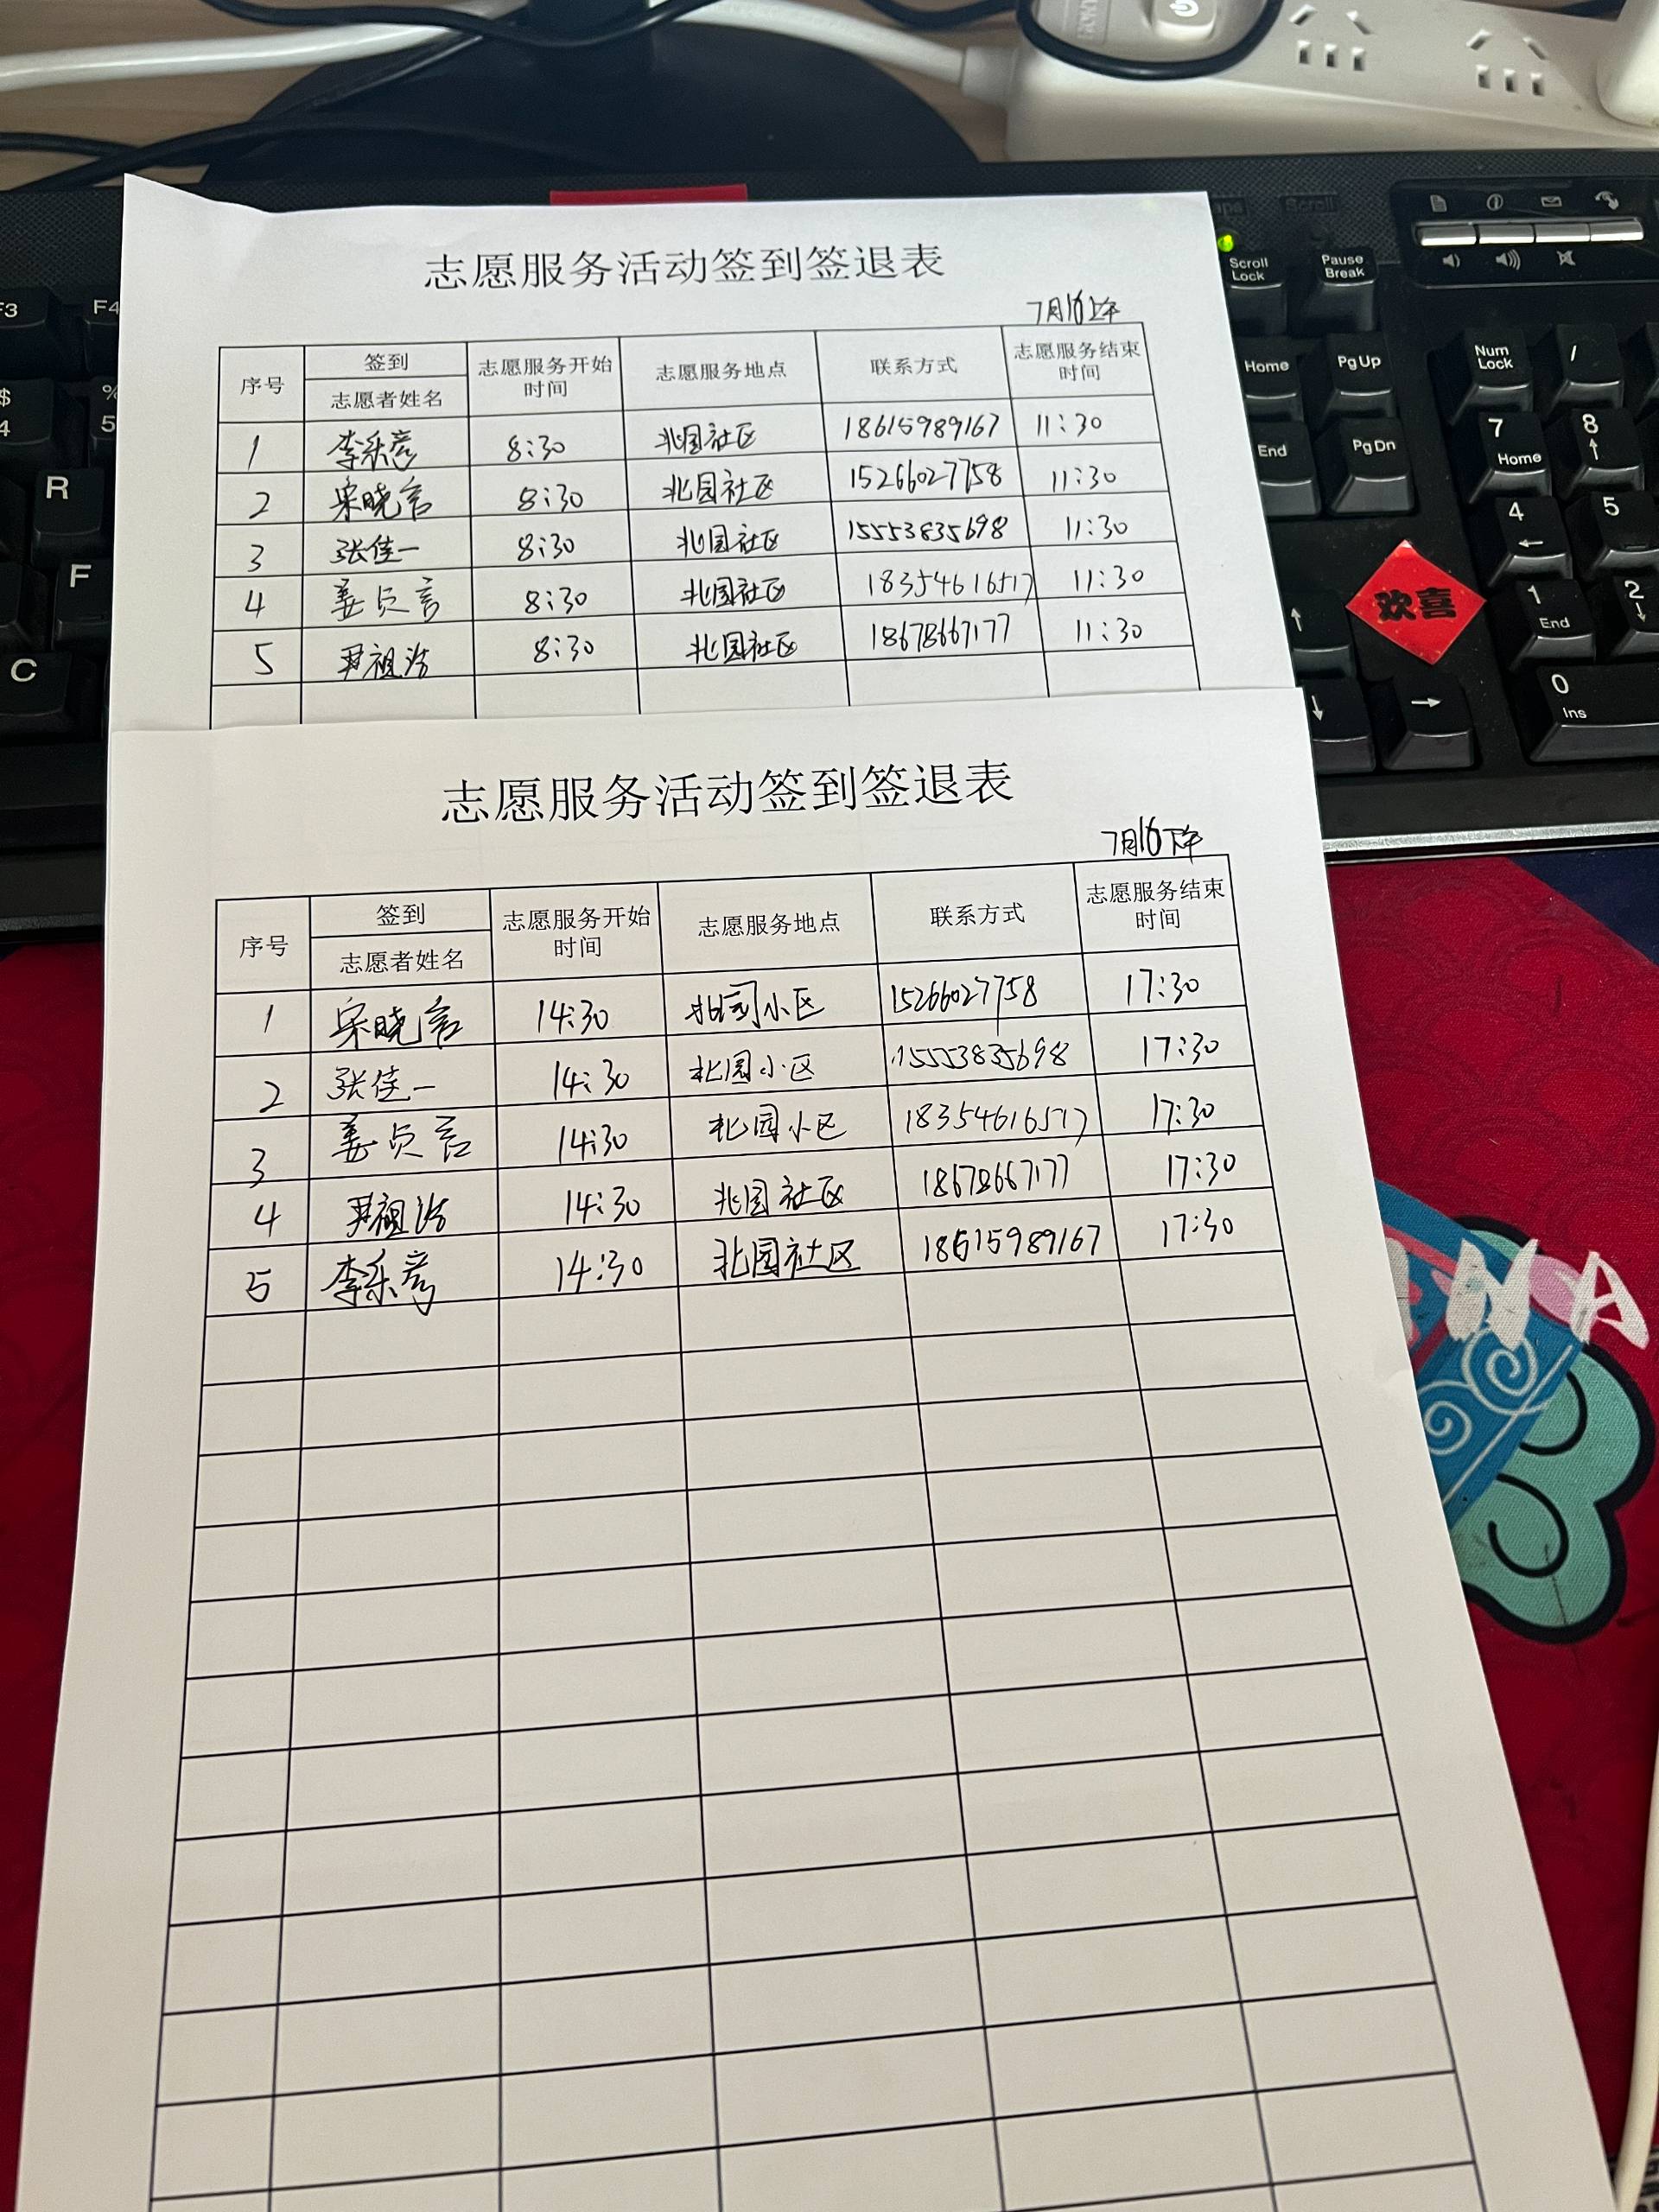 志愿服务活动签到签退表
7月16上午
序号 签到 志愿者姓名 志愿服务开始时间 志愿服务地点 联系方式 志愿服务结束时间
1 李乐彦 8:30 北园社区 18615989167 11:30
2 宋晓言 8:30 北园社区 15266027758 11:30
3 张佳一 8:30 北园社区 15553835698 11:30
4 姜贞言 8:30 北园社区 18354616517 11:30
5 尹祖浩 8:30 北园社区 18678667177 11:30
志愿服务活动签到签退表
7月16下午
序号 签到 志愿者姓名 志愿服务开始时间 志愿服务地点 联系方式 志愿服务结束时间
1 宋晓言 14:30 北园小区 15266027758 17:30
2 张佳一 14:30 北园小区 15553835698 17:30
3 姜贞言 14:30 北园小区 18354616517 17:30
4 尹祖浩 14:30 北园社区 18678667177 17:30
5 李乐彦 14:30 北园社区 18615989167 17:30
欢喜
F3
F4
$
4
%
5
R
F
C
Scroll
Lock
Pause
Break
Home
PgUp
End
PgDn
Num
Lock
/
7
Home
8
4
5
1
End
2
0
Ins